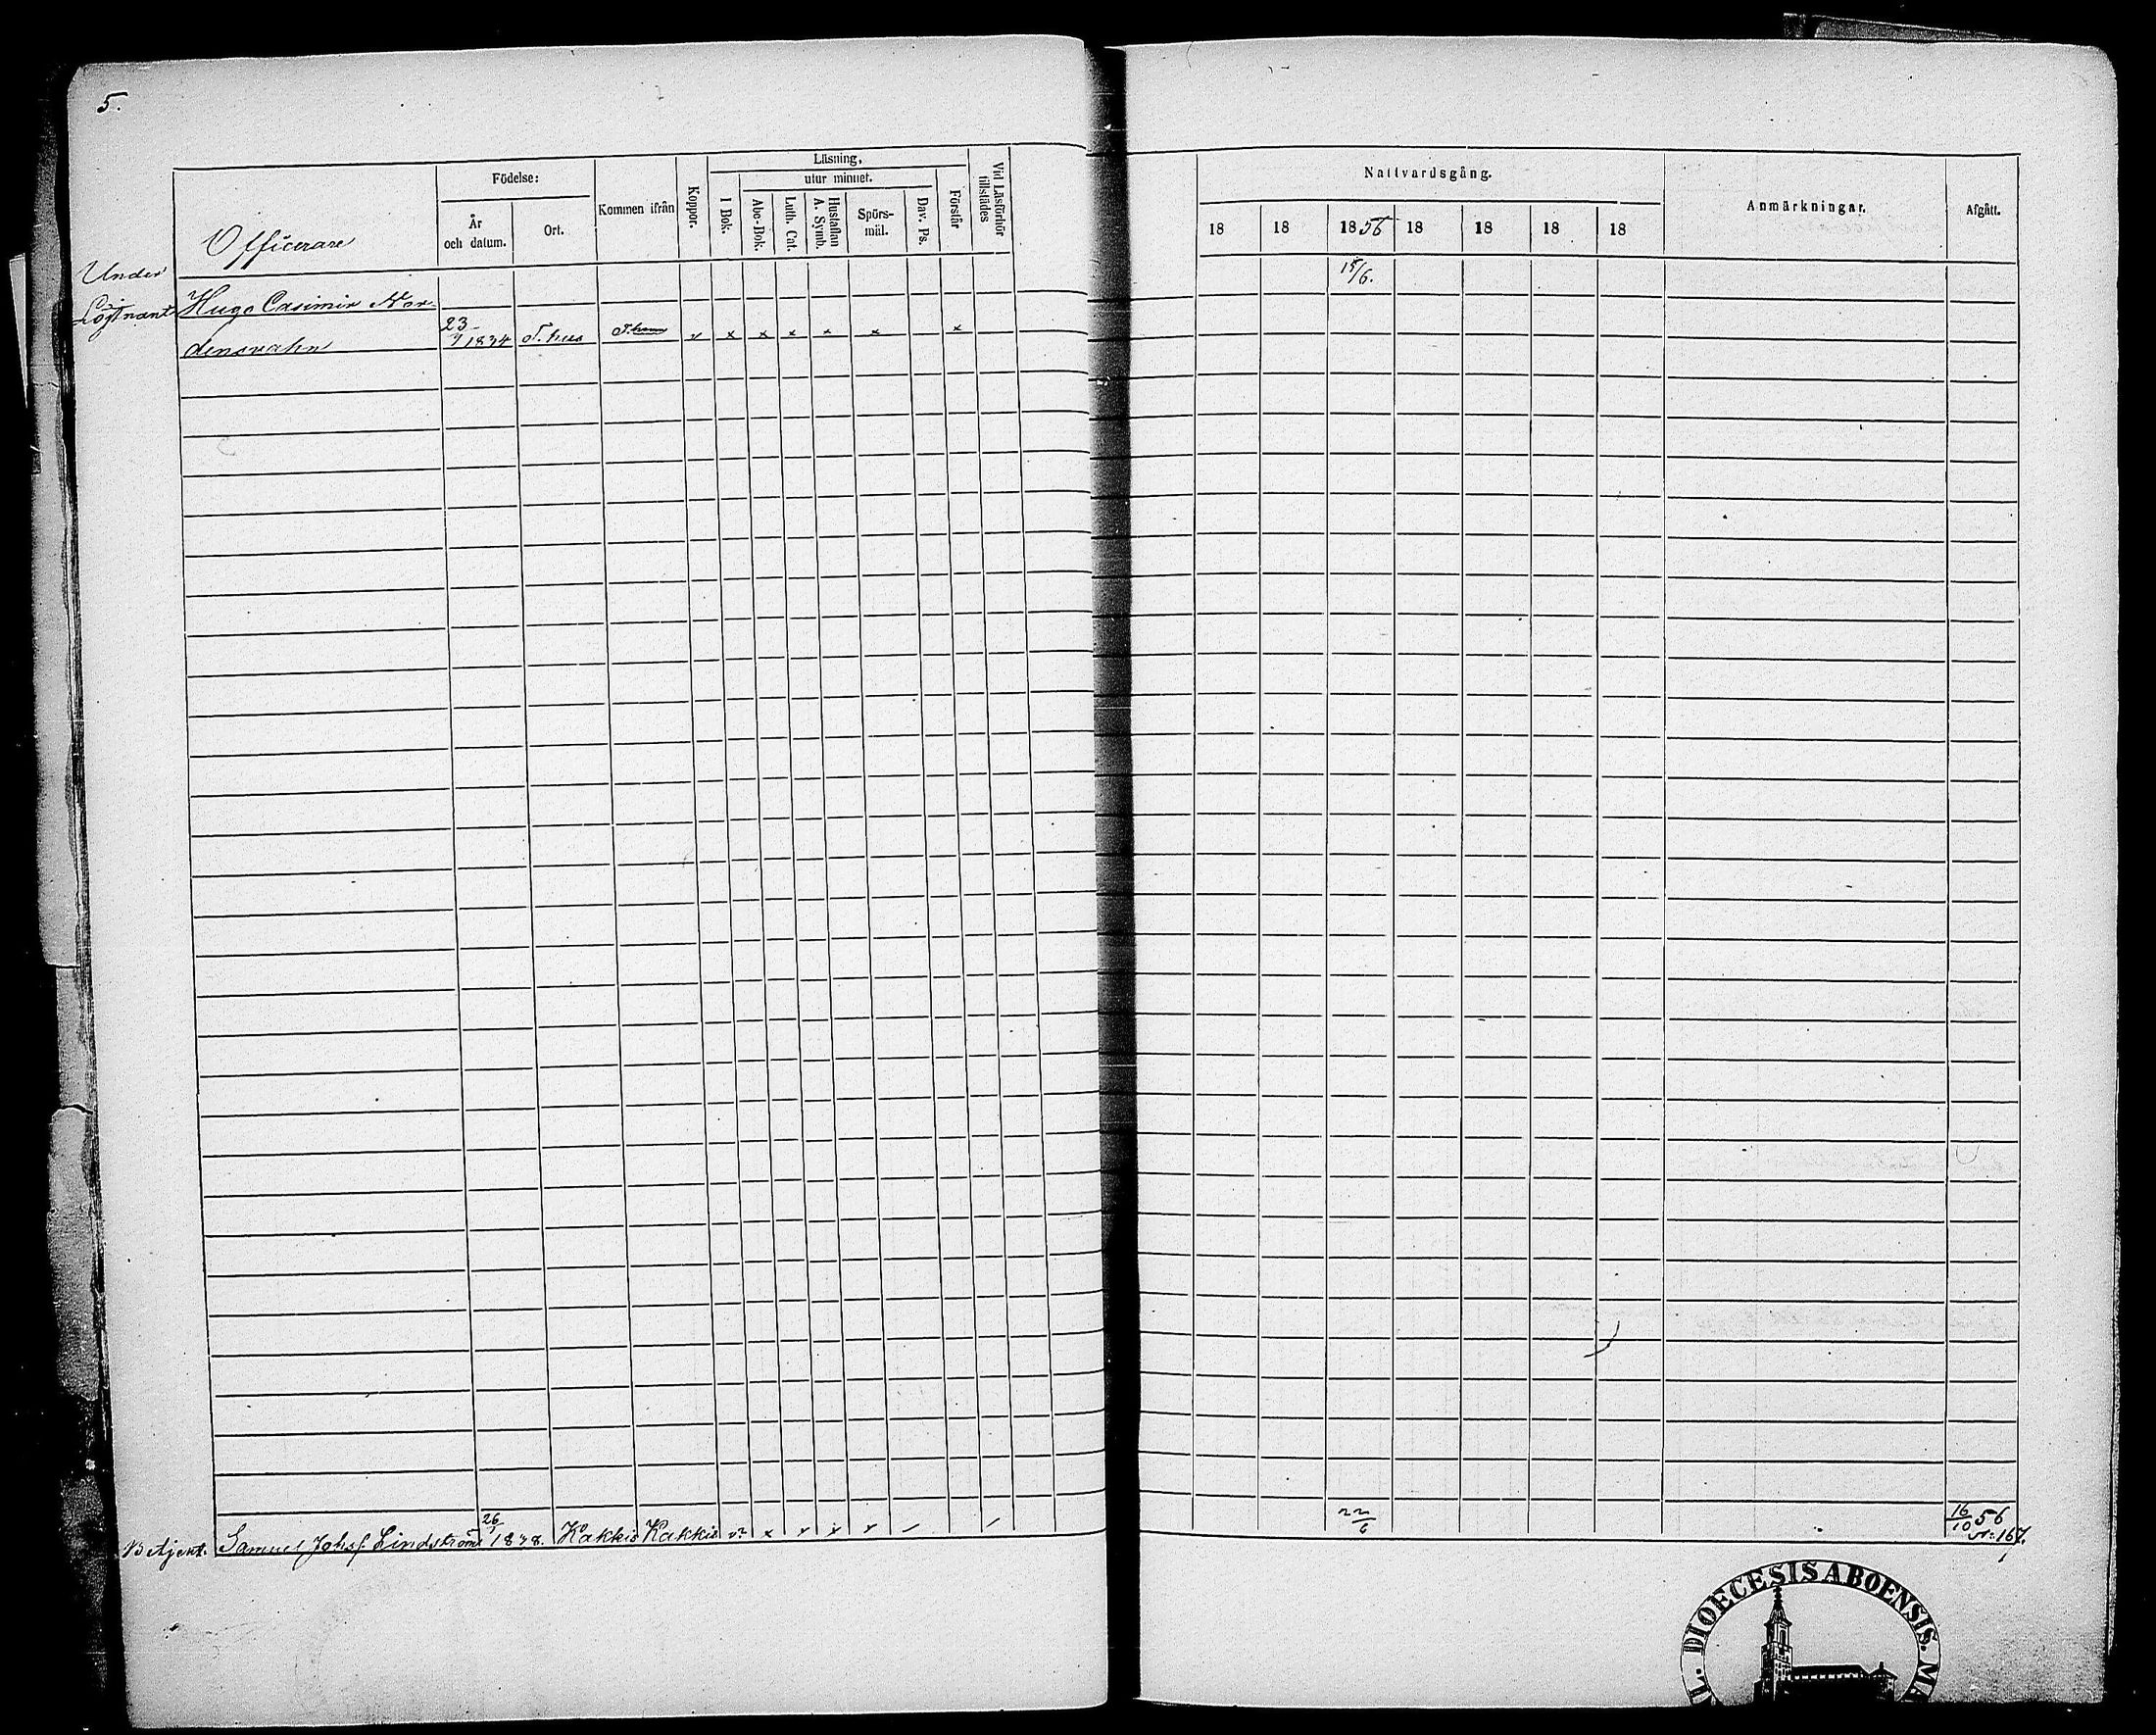 5.
Läsning.
Födelse:
utur minnet.
Kommen ifrån
Koppor.
I Bok.
Abc-Bok.
Luth. Cat.
Hustaflan
A. Symb.
Spörs-
mål.
Dav. Ps.
Förstår
Vid Läsförhör
tillstädes
År
och datum.
Ort.
Officerare
Nattvardsgång.
Anmärkningar.
Afgått.
18 18 1856 18 18 18 18
Under
15/6.
Löjtnant Hugo Casimir Nor-
densvahn 23 1834 T. hus x x x x x x
Betjent. Samuel Johsf. Lindström 26 1838. Kakkis Kakkis 22/6 16/10 56
N:167.
DIOECESIS ABOENSIS. MA